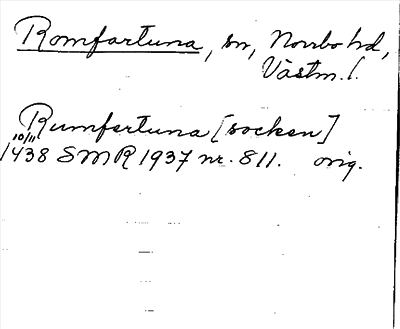 Romfartuna, sn, Norrbo hd,
Västm. l.
Rumfertuna [socken]
10/11
1438 SMR 1937 nr. 811. orig.